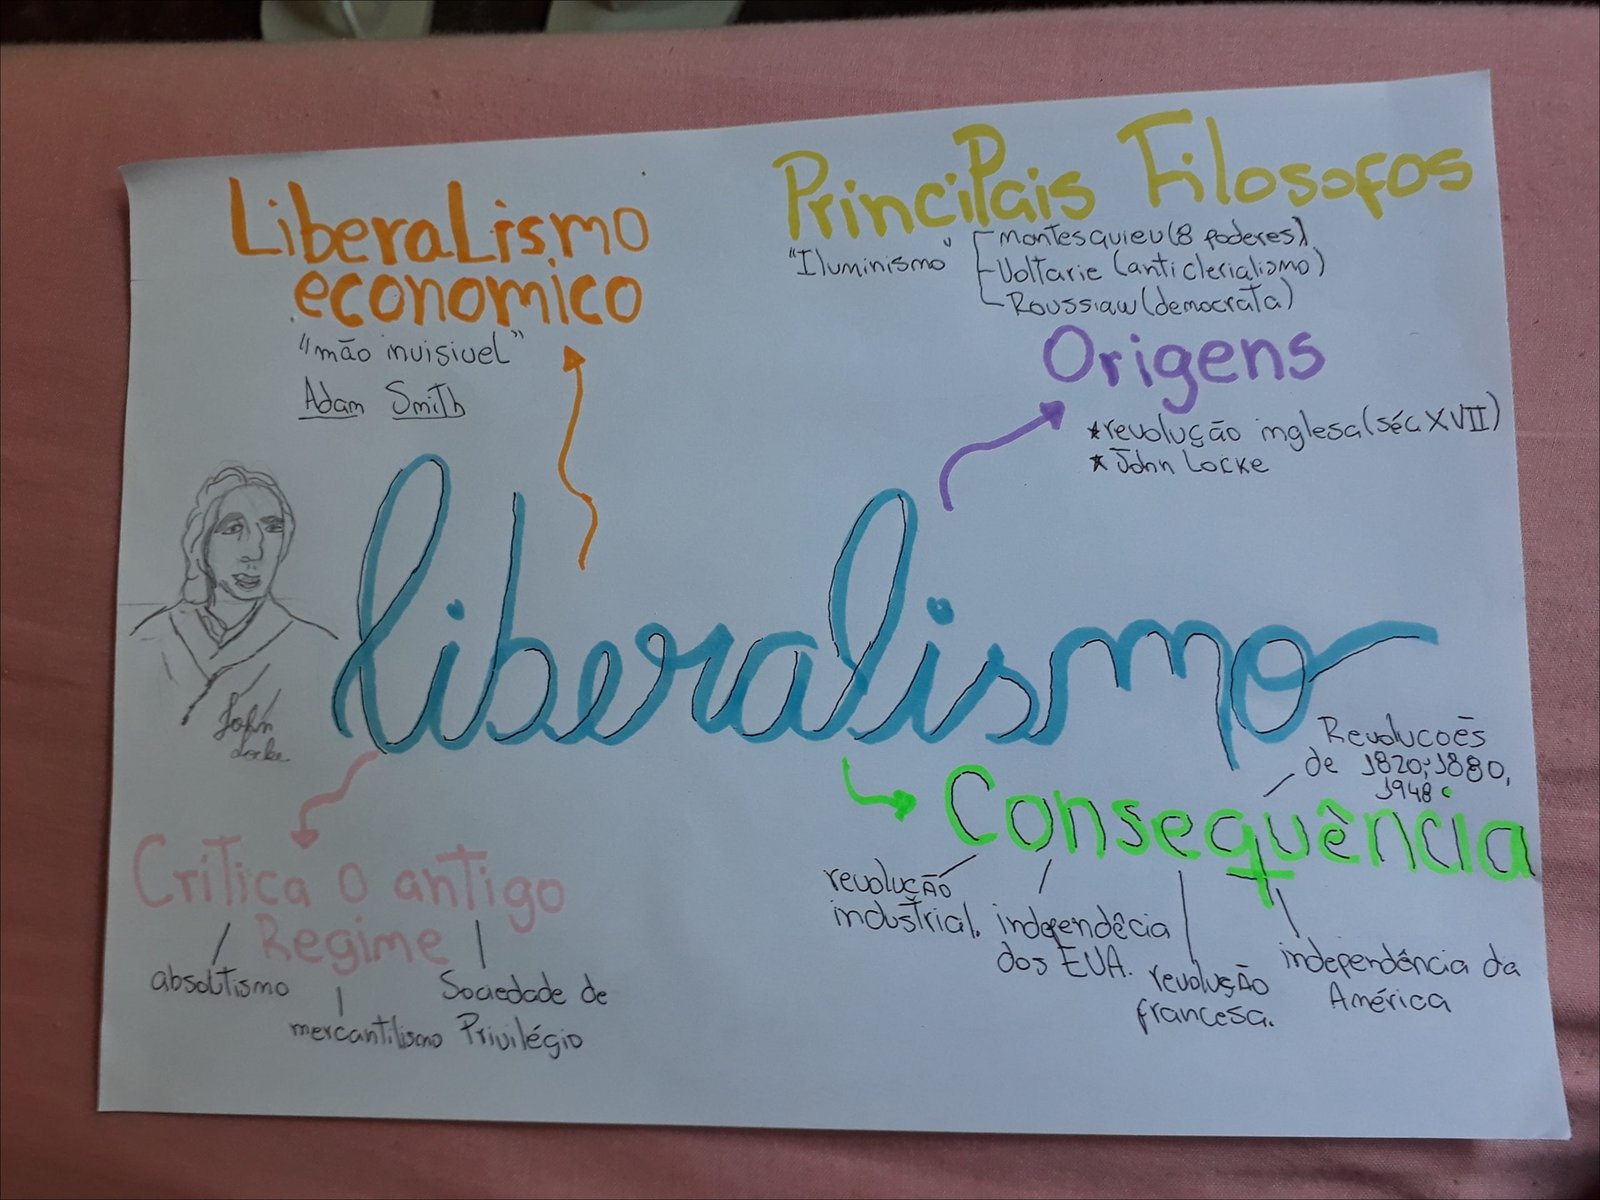 LiberaLismo
economico
"mão invisivel"
Adam Smith
PrinciPais Filosofos
"Iluminismo"
montesquieu (8 poderes)
Voltarie (anticlerialismo)
Roussiaw (democrata)
Origens
*revolução inglesa (séc XVII)
*John Locke
liberalismo
John
Locke
Critica o antigo
Regime
absolitismo
mercantilismo
Sociedade de
Privilégio
Revolucoēs
de 1820; 1880,
1948
Consequência
revolução
industrial.
independêcia
dos EUA.
revolução
francesa.
independência da
América